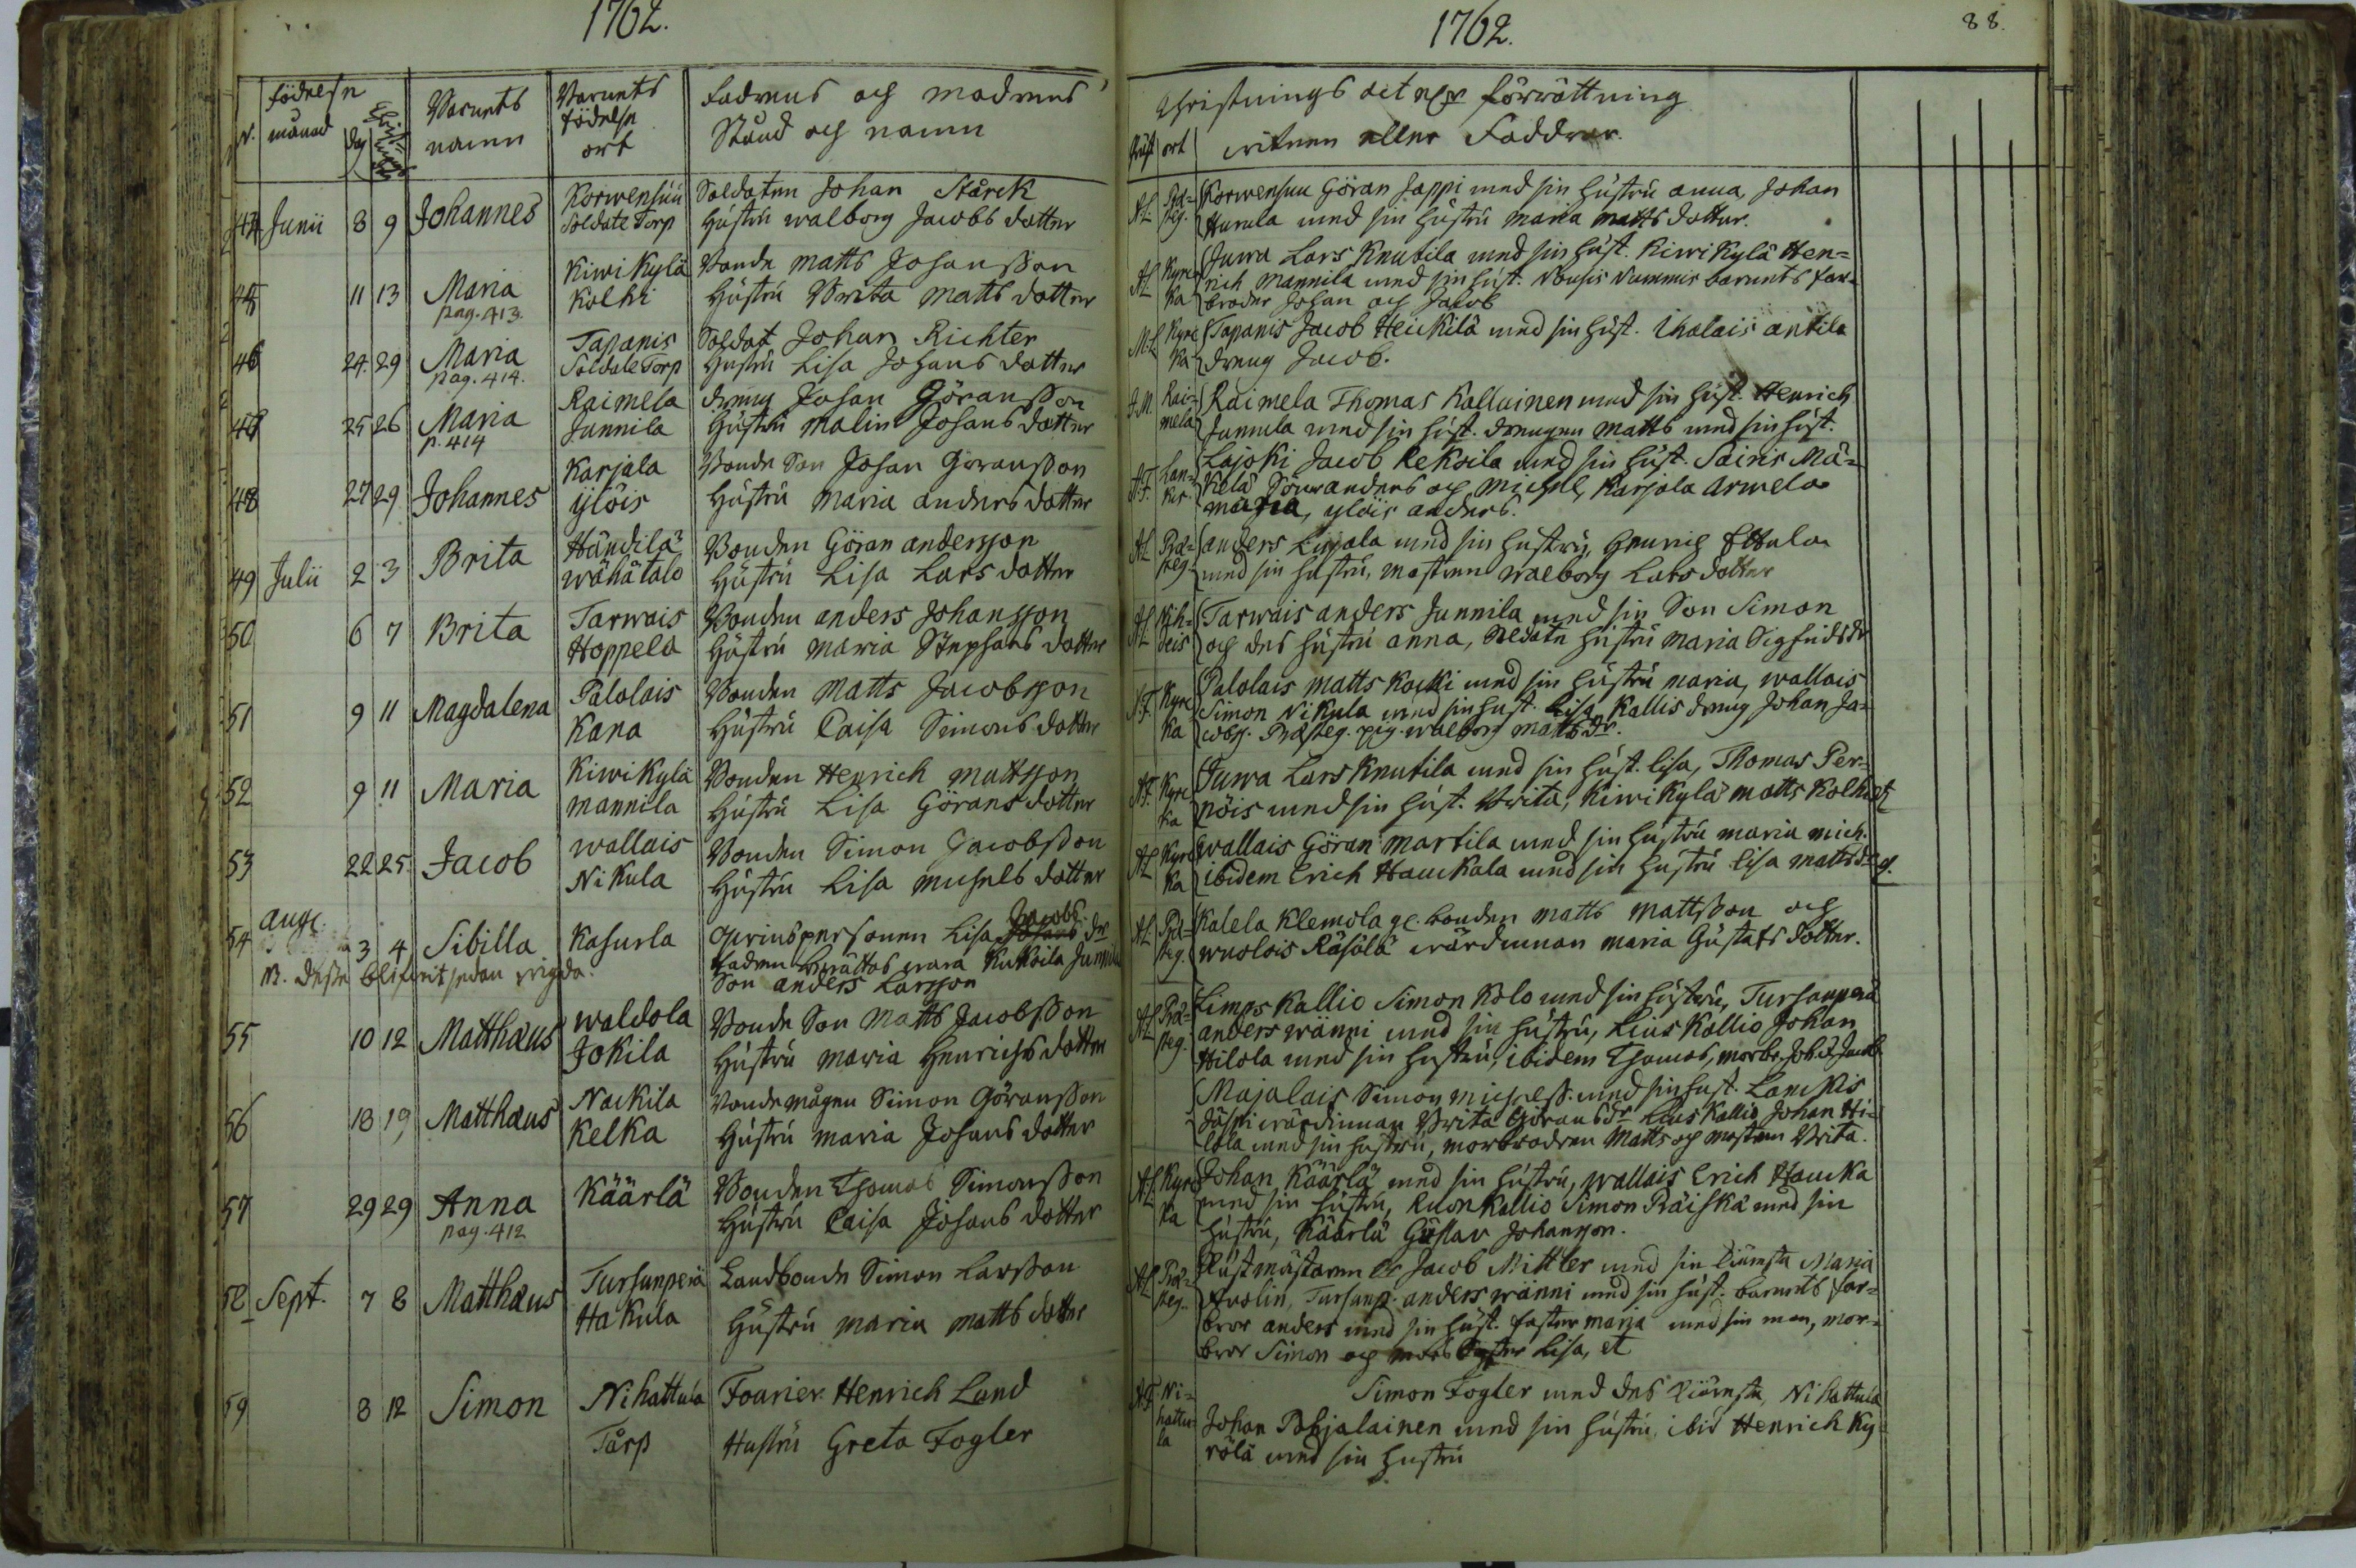 1762.
födelse
N. månad dag
Barnets
namn
Barnets
födelse
ort
Fadrens och modrens
Stånd och namn
44 Junii 8 9 Johannes
Korwensuu
Soldate Torp
Soldaten Johan Stårck
Hústrú walborg Jacobs dotter
45 11 13 Maria
pag. 413.
Kiwikylä
Kolhi
Bonde Matts Johansson
Hústrú Brita Matts dotter
46 24. 29 Maria
pag. 414.
Tapanis
Soldate Torp
Soldat Johan Richter
Hústrú Lisa Johans dotter
25 26 Maria
p. 414
Raimela
Junnila
dreng Johan Göransson
Hústrú Malin Johans dotter
48 27 29 Johannes
Karjala
ylöis
Bonde Son Johan Göransson
Hústrú Maria anders dotter
49 Julii 2 3 Brita
Händilä
wähätalo
Bonden Göran andersson
Hústrú Lisa Lars dotter
50 6 7 Brita
Tarwais
Hoppela
Bonden anders Johansson
Hústrú Maria Stephans dotter
51 9 11 Magdalena
Palolais
Kana
Bonden Matts Jacobsson
Hústrú Caisa Simons dotter
52 9 11 Maria
Kiwikylä
mannila
Bonden Henrich mattsson
Hústrú Lisa Görans dotter
53 22 25. Jacob
wallais
Nikula
Bonden Simon Jacobsson
Hústrú Lisa michels dotter
54 aug. 3 4 Sibilla
Kasurla
qvinspersonen Lisa Jacobs dr
fadren berättas wara Kukoila Junnila
Son anders Larsson
NB. desse blifwit sedan wigda.
55 10 12 Matthæus
waldola
Jokila
Bonde Son Matts Jacobsson
Hústrú maria Henrichs dotter
56 18 19 Matthæus
Nackila
Kelka
Bonde mågen Simon Göransson
Hústrú maria Johans dotter
57 29 29 Anna
pag. 412
Käärlä
Bonden Thomas Simonsson
Hústrú Caisa Johans dotter
58 Sept. 7 8 Matthæus
Tursunperä
Hakula
Landbonde Simon Larsson
Hústrú maria matts dotter
59 8 12 Simon
Nihattula
Tårp
Fourier Henrich Lund
Hustrú Greta Fogler
1762.
88.
Christnings förrättning
ort witnen eller Faddrar.
AL Præsteg.
Korwensuu Göran Jappi med sin hústrú anna, Johan
Hunula med sin hústrú maria matts dotter.
AL Kyrcka
Juwa Lars Knutila med sin húst. Kiwikylä Hen=
rich Mannila med sin húst. Nousis Nummis barnets far=
broder Johan och Jacob
ML Kyrcka
Tapanis Jacob Heickilä med sin húst. ihalais antila
dreng Jacob.
Raimela
Raimela Thomas Kallainen med sin húst. Henrich
Junnila med sin húst. drengen Matts med sin húst.
Lajoki Jacob Kekoila med sin húst. Sairis Mä=
kelä Söner anders och michel, Karjala armela
maria, ylöis anders.
AL Præsteg.
anders Linjala med sin hústrú, Henrich Ettala
med sin hústrú, mostren walborg Lars dotter
AL
Tarwais anders Junnila med sin Son Simon
och des hústrú anna, Hústrú maria Sigfrids dr
Kyrcka
Palolais matts Kocki med sin hústrú maria, wallais
Simon Nikula med sin húst. Lisa, Kallis dreng Johan Ja=
cobss. Præsteg. pig. walborg matts dr.
Kyrcka
Juwa Lars Knutila med sin húst. Lisa, Thomas Per=
nöis med sin húst. Brita, Kiwikylä matts Kolhi
AL Kyrcka
wallais Göran martila med sin hústrú maria mich.
ibidem Erich Hauckala med sin hústrú Lisa matts dr
AL Præsteg.
Kalela Klemola gl. bonden matts mattsson och
wuolois Räsälä wärdinnan maria Gústafs dotter.
AL Præsteg.
Kallio Simon Kolo med sin hústrú, Tursunperä
anders wänni med sin hústrú, Kallio Johan
Hilola med sin hústrú, ibidem Thomas,
Majalais Simon michelss. med sin húst. Lanckis
wärdinnan Brita Görans dr Kallio Johan Hi=
lola med sin hústrú, morbrodren Matts och mostren Brita.
AL Kyrcka
Johan Käärlä med sin hústrú, wallais Erich Haucka
med sin hústrú, Kuonkallio Simon Räiskä med sin
hústrú, Käärlä Gústav Johansson.
AL Præsteg.
Rústmästaren Jacob Mittler med sin kiäresta Maria
Avolin, Tursunp. anders wänni med sin húst. barnets far=
bror anders med sin húst. faster maria med sin man, mor=
bror Simon och mors Syster Lisa, et
Nihattula
Simon Fogler med des kiäresta, Nihattula
Johan Pohjalainen med sin hústrú, ibid Henrich Ky=
rölä med sin hústrú